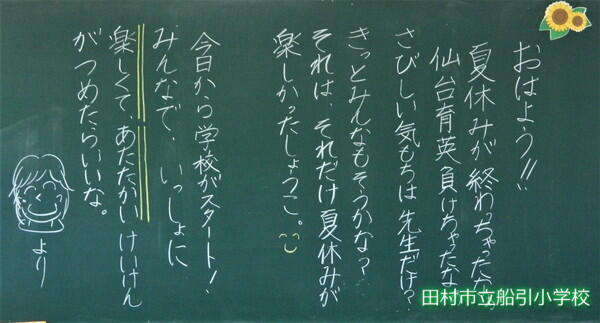 おはよう!!
夏休みが終わっちゃったな。
仙台育英負けちゃったな。
さびしい気もちは先生だけ?
きっとみんなもそうかな?
それは、それだけ夏休みが
楽しかったしょうこ。
今日から学校がスタート!
みんなで、いっしょに
楽しくて、あたたかいけいけん
がつめたらいいな。
より
田村市立船引小学校